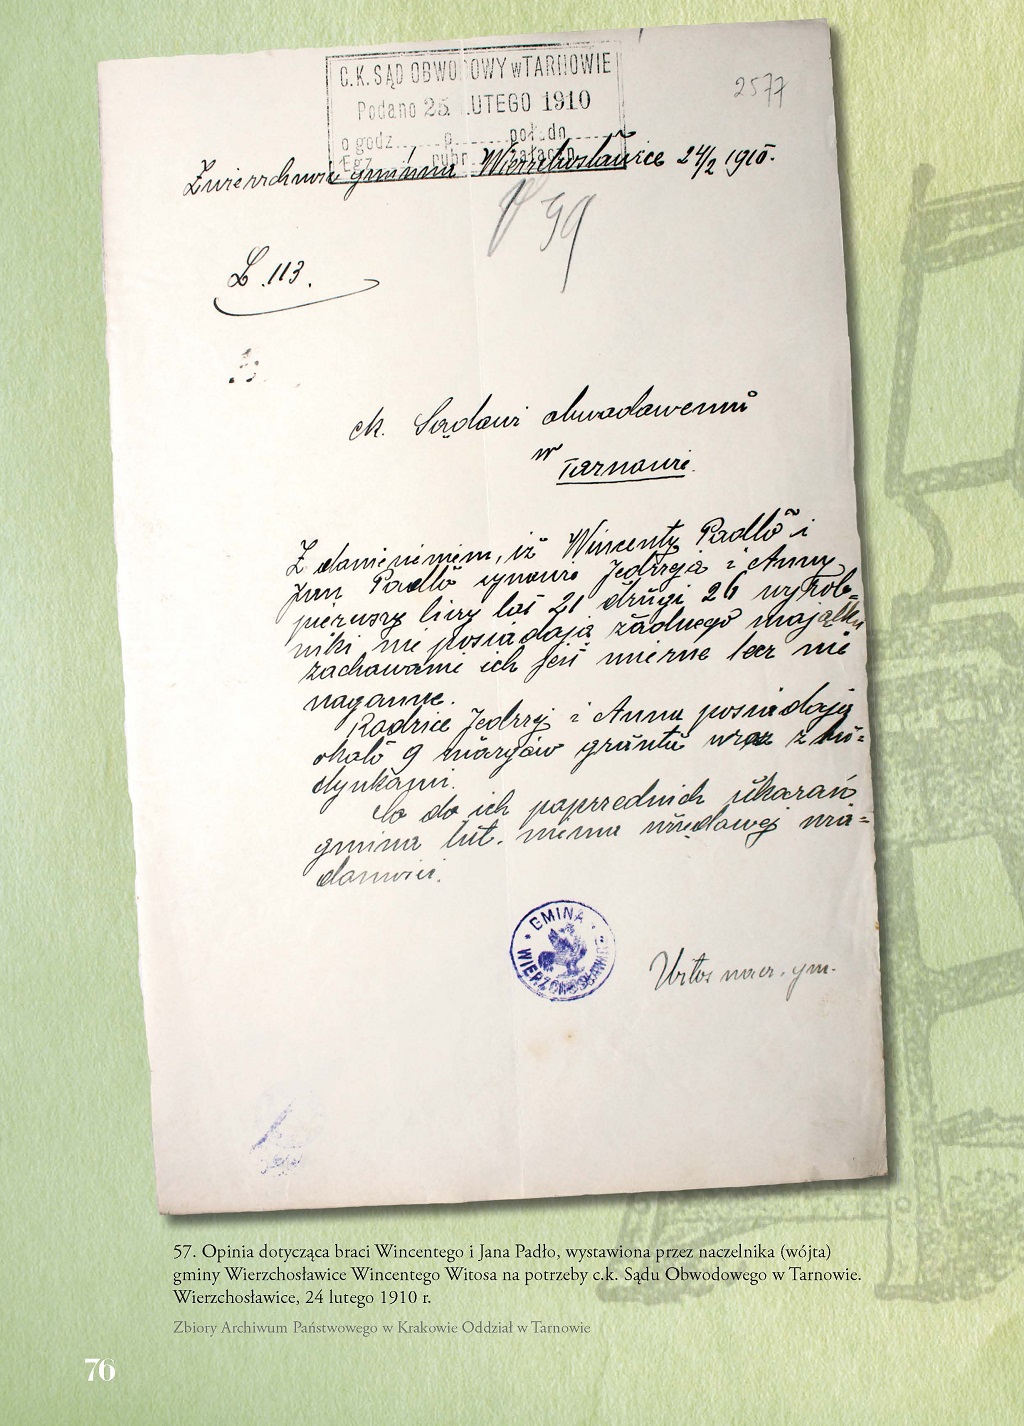 C.K. SĄD OBWODOWY w TARNOWIE
Podano 25 LUTEGO 1910
o godz. p. poł. dn.
Egz. rubr. załączn.
2577
Zwierzchność gminna Wierzchosławice 24/2 1910.
99
L. 113.
ck. Sądowi obwodowemu
w
Tarnowie.
Z doniesieniem, iż Wincenty Padło i
Jan Padło synowie Jędrzeja i Anny
pierwszy liczy lat 21 drugi 26 wyrob=
niki nie posiadają żadnego majątku
zachowanie ich jest mierne lecz nie
naganne.
Rodzice Jędrzej i Anna posiadają
około 9 morgów gruntu wraz z bu=
dynkami.
Co do ich poprzednich ukarań
gmina tut. niema urzędowej wia=
domości.
GMINA WIERZCHOSŁAWICE
Witos nacz. gm.
57. Opinia dotycząca braci Wincentego i Jana Padło, wystawiona przez naczelnika (wójta)
gminy Wierzchosławice Wincentego Witosa na potrzeby c.k. Sądu Obwodowego w Tarnowie.
Wierzchosławice, 24 lutego 1910 r.
Zbiory Archiwum Państwowego w Krakowie Oddział w Tarnowie
76